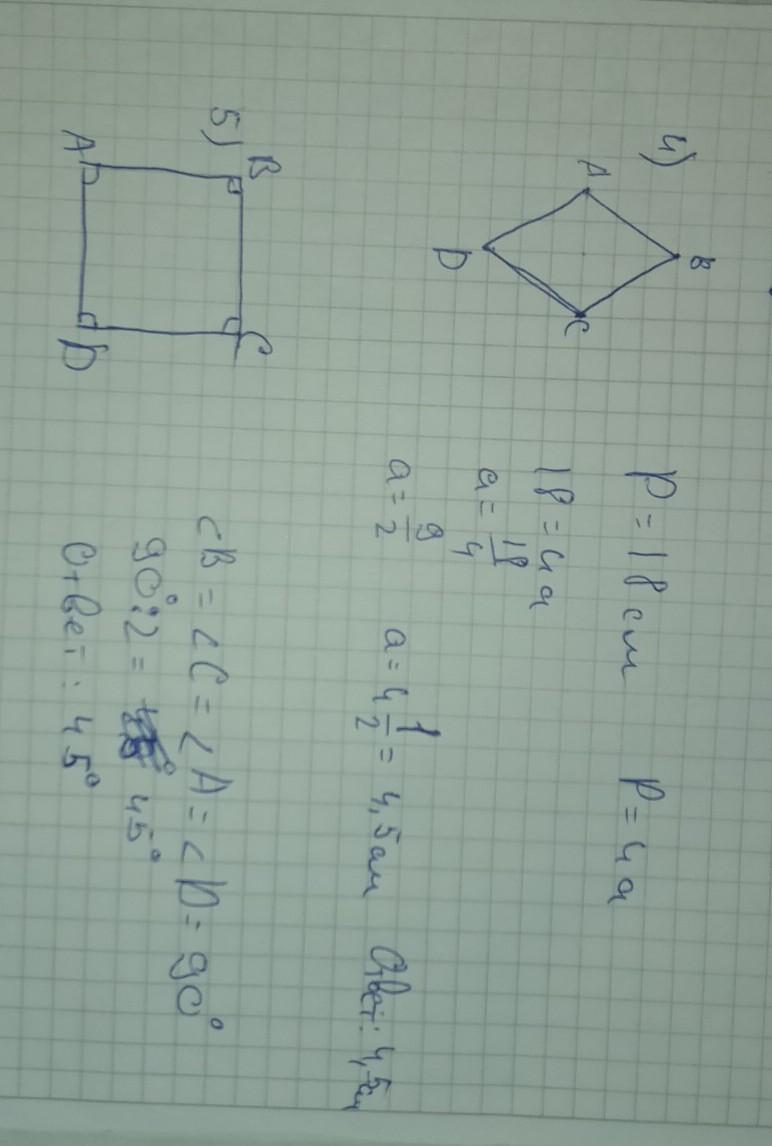 4)
A B C D
P = 18 см P = 4a
18 = 4a
a = 18/4
a = 9/2 a = 4 1/2 = 4,5 см Ответ: 4,5 см
5)
B C
A D
∠B = ∠C = ∠A = ∠D = 90°
90°:2 = 45°
Ответ: 45°